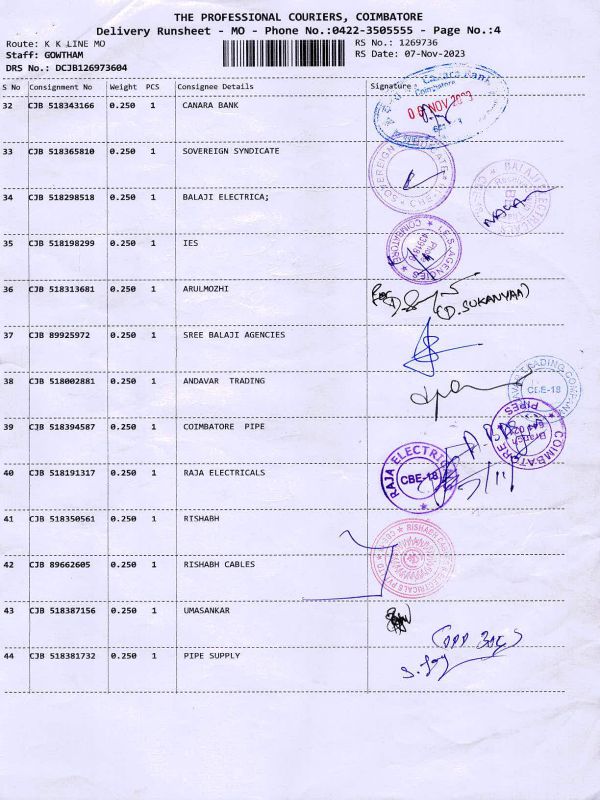 THE PROFESSIONAL COURIERS, COIMBATORE
Delivery Runsheet - MO - Phone No.:0422-3505555 - Page No.:4
Route: K K LINE MO RS No.: 1269736
Staff: GOWTHAM RS Date: 07-Nov-2023
DRS No.: DCJB126973604
S No Consignment No Weight PCS Consignee Details Signature
32 CJB 518343166 0.250 1 CANARA BANK
Canara Bank
Coimbatore
NOV 2023
33 CJB 518365810 0.250 1 SOVEREIGN SYNDICATE
SOVEREIGN
34 CJB 518298518 0.250 1 BALAJI ELECTRICA;
BALAJI
35 CJB 518198299 0.250 1 IES
I.E.S. AGENCIES COIMBATORE
36 CJB 518313681 0.250 1 ARULMOZHI
(D.SUKANYAA)
37 CJB 89925972 0.250 1 SREE BALAJI AGENCIES
38 CJB 518002881 0.250 1 ANDAVAR TRADING
TRADING COMPANY
CBE-18
39 CJB 518394587 0.250 1 COIMBATORE PIPE
COIMBATORE PIPES
Branch
40 CJB 518191317 0.250 1 RAJA ELECTRICALS
RAJA ELECTRIC
CBE-18
41 CJB 518350561 0.250 1 RISHABH
RISHABH
42 CJB 89662605 0.250 1 RISHABH CABLES
43 CJB 518387156 0.250 1 UMASANKAR
44 CJB 518381732 0.250 1 PIPE SUPPLY